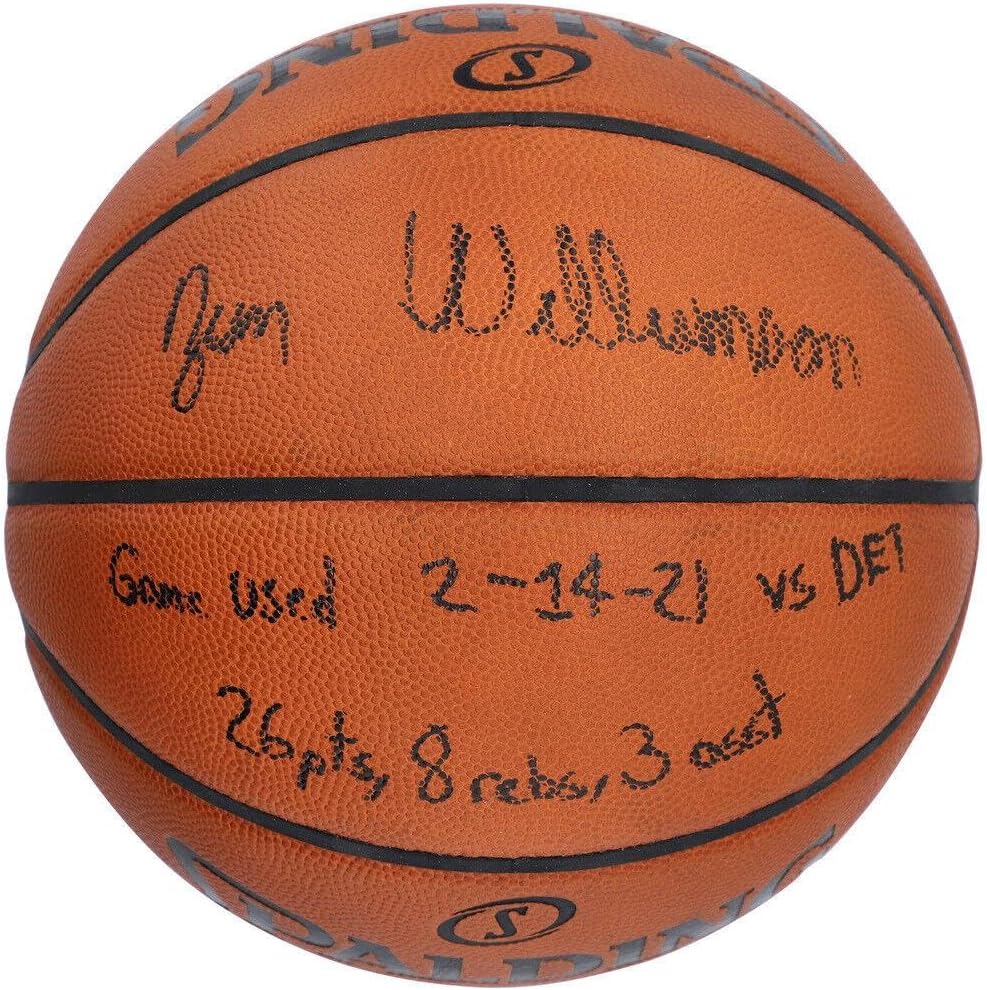 SPALDING
S
Zion Williamson
Game used 2-14-21 vs DET
26pts, 8rebs, 3 asst
S
SPALDING